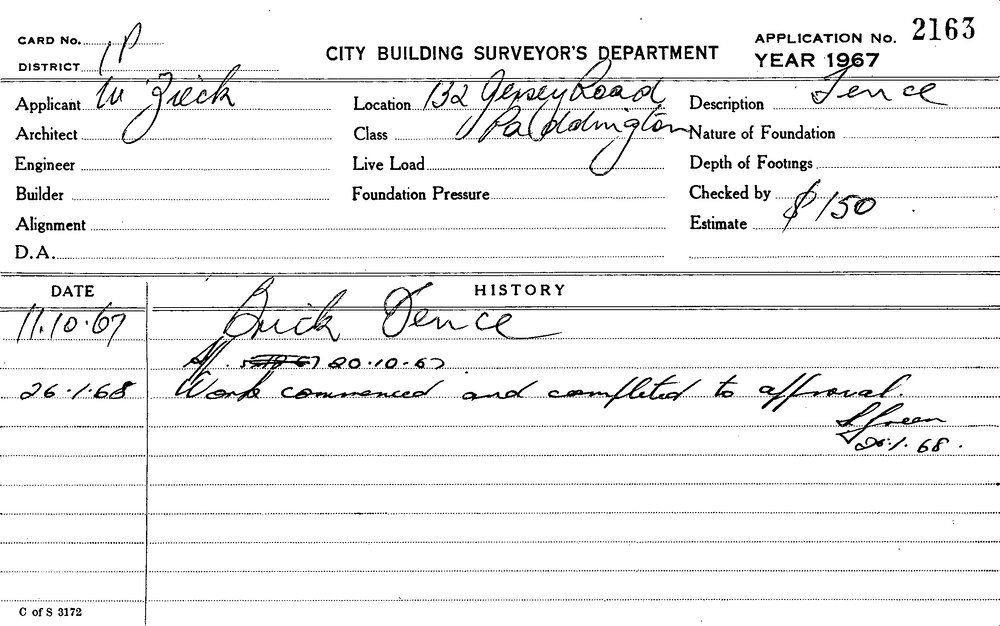 CARD No. 1P
CITY BUILDING SURVEYOR'S DEPARTMENT
APPLICATION No. 2163
DISTRICT
YEAR 1967
Applicant W Zieck
Location 132 Jersey Road
Description Fence
Architect
Class Paddington
Nature of Foundation
Engineer
Live Load
Depth of Footings
Builder
Foundation Pressure
Checked by
Alignment
Estimate $150
D.A.
DATE HISTORY
11.10.67 Brick Fence
20.10.67
26.1.68 Work commenced and completed to approval.
Green
26.1.68.
C of S 3172